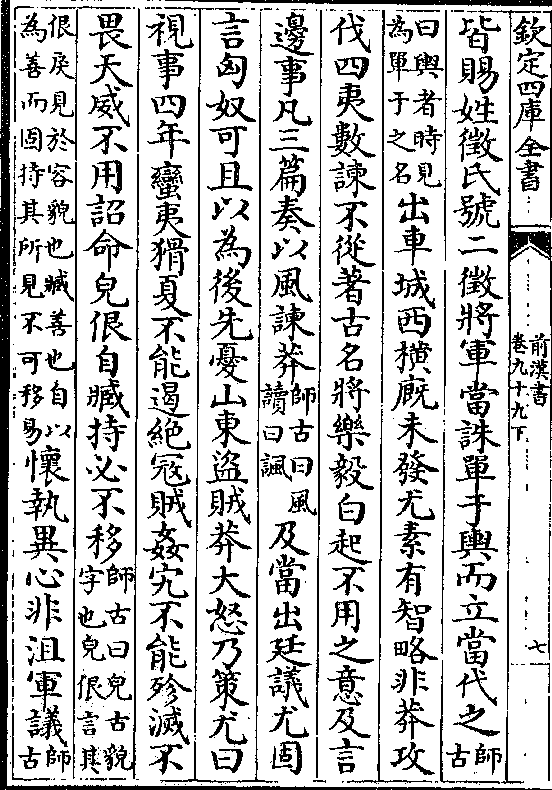 欽定四庫全書
前漢書
卷九十九下
七
皆賜姓徵氏號二徵將軍當誅單于輿而立當代之師古
曰輿者時見為單于之名出車城西橫廐未發尤素有智略非莽攻
伐四夷數諫不從著古名將樂毅白起不用之意及言
邊事凡三篇奏以風諫莽師古曰風讀曰諷及當出廷議尤固
言匈奴可且以為後先憂山東盜賊莽大怒乃策尤曰
視事四年蠻夷猾夏不能遏絶冦賊姦宄不能殄滅不
畏天威不用詔命皃佷自臧持必不移師古曰皃古貌字也皃佷言其
佷戾見於容貌也臧善也自以為善而固持其所見不可移易懷執異心非沮軍議師古